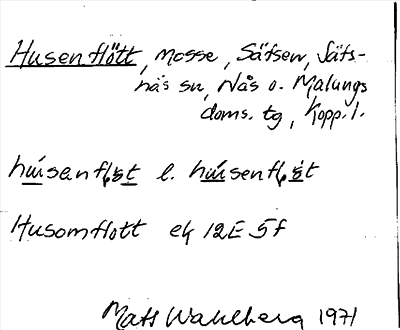 Husenflött, mosse, Säfsen, Säfs-
näs sn, Nås o. Malungs
doms. tg, Kopp. l.
húsenfløt l. húsenfløt
Husomflott ek 12E 5f
Mats Wahlberg 1971